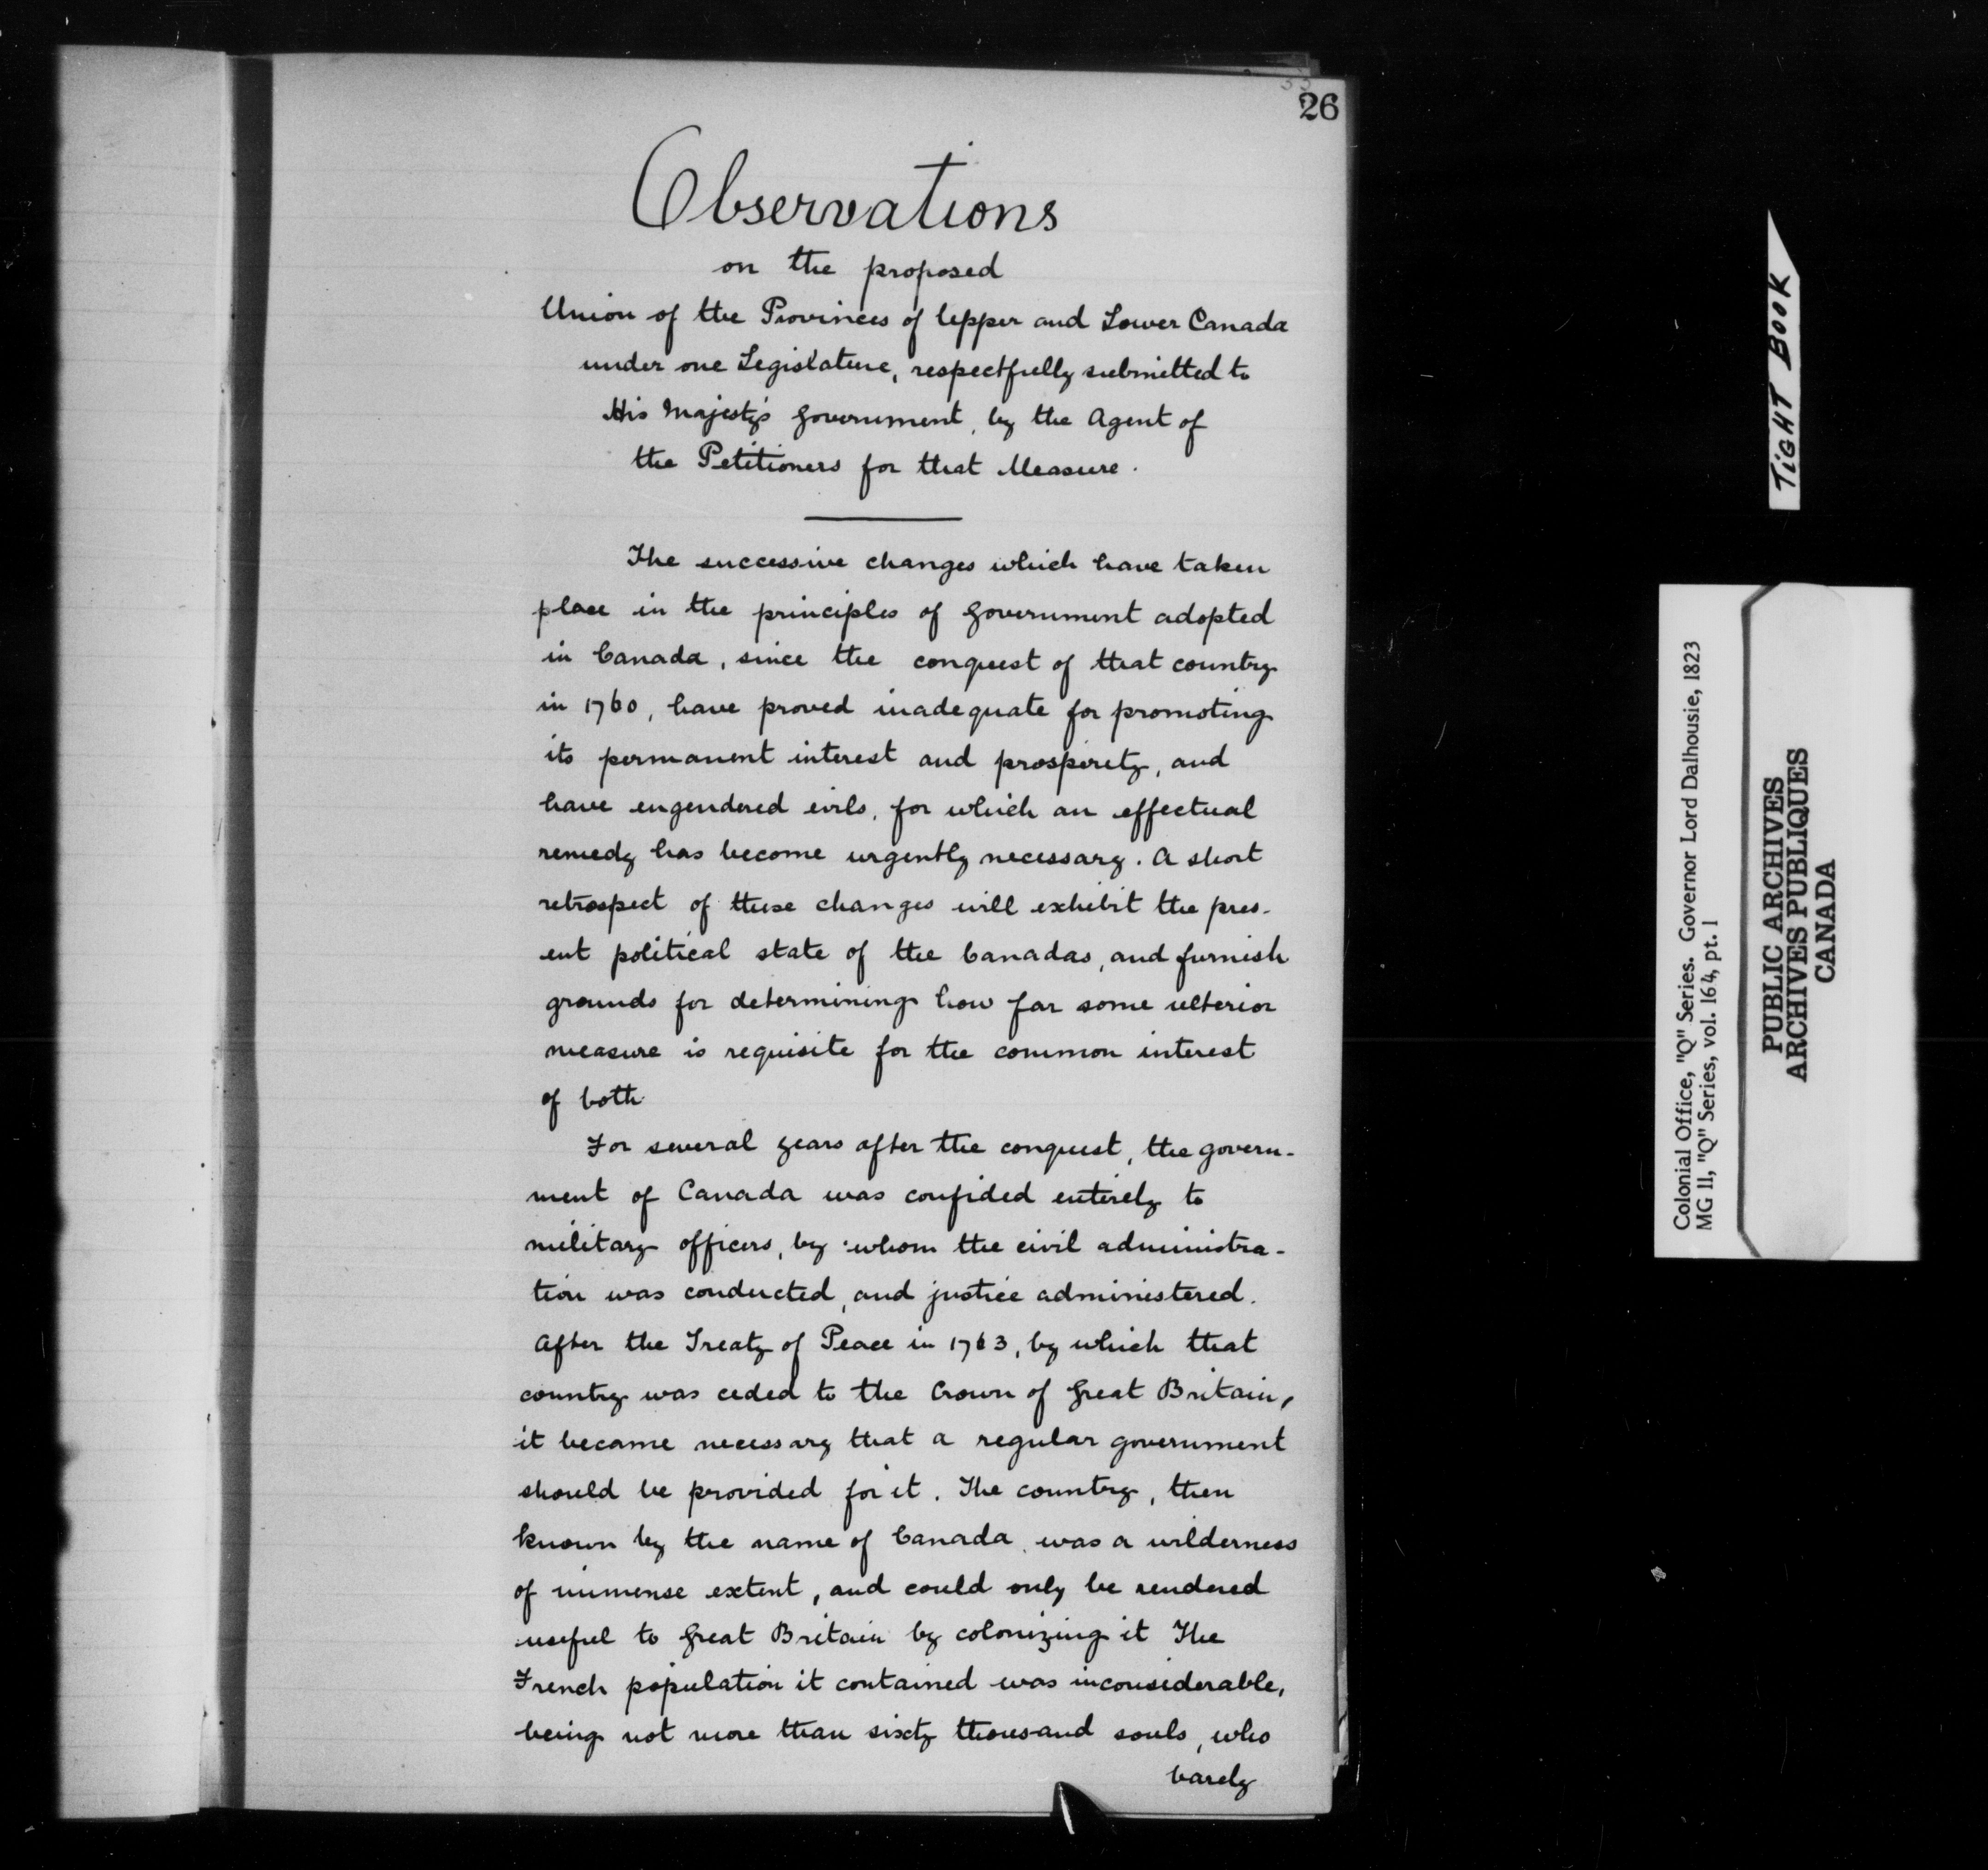 26
Observations
on the proposed
Union of the Provinces of Upper and Lower Canada
under one Legislature, respectfully submitted to
His Majesty's Government, by the Agent of
the Petitioners for that Measure.
The successive changes which have taken
place in the principles of Government adopted
in Canada, since the conquest of that country
in 1760, have proved inadequate for promoting
its permanent interest and prosperity, and
have engendered evils, for which an effectual
remedy has become urgently necessary. A short
retrospect of these changes will exhibit the pres-
ent political state of the Canadas, and furnish
grounds for determining how far some ulterior
measure is requisite for the common interest
of both
For several years after the conquest, the govern-
ment of Canada was confided entirely to
military officers, by whom the civil administra-
tion was conducted, and justice administered.
After the Treaty of Peace in 1763, by which that
country was ceded to the Crown of Great Britain,
it became necessary that a regular government
should be provided for it. The country, then
known by the name of Canada, was a wilderness
of immense extent, and could only be rendered
useful to Great Britain by colonizing it The
French population it contained was inconsiderable,
being not more than sixty thousand souls, who
barely
TIGHT BOOK
Colonial Office, "Q" Series. Governor Lord Dalhousie, 1823
MG 11, "Q" Series, vol. 164, pt. 1
PUBLIC ARCHIVES
ARCHIVES PUBLIQUES
CANADA